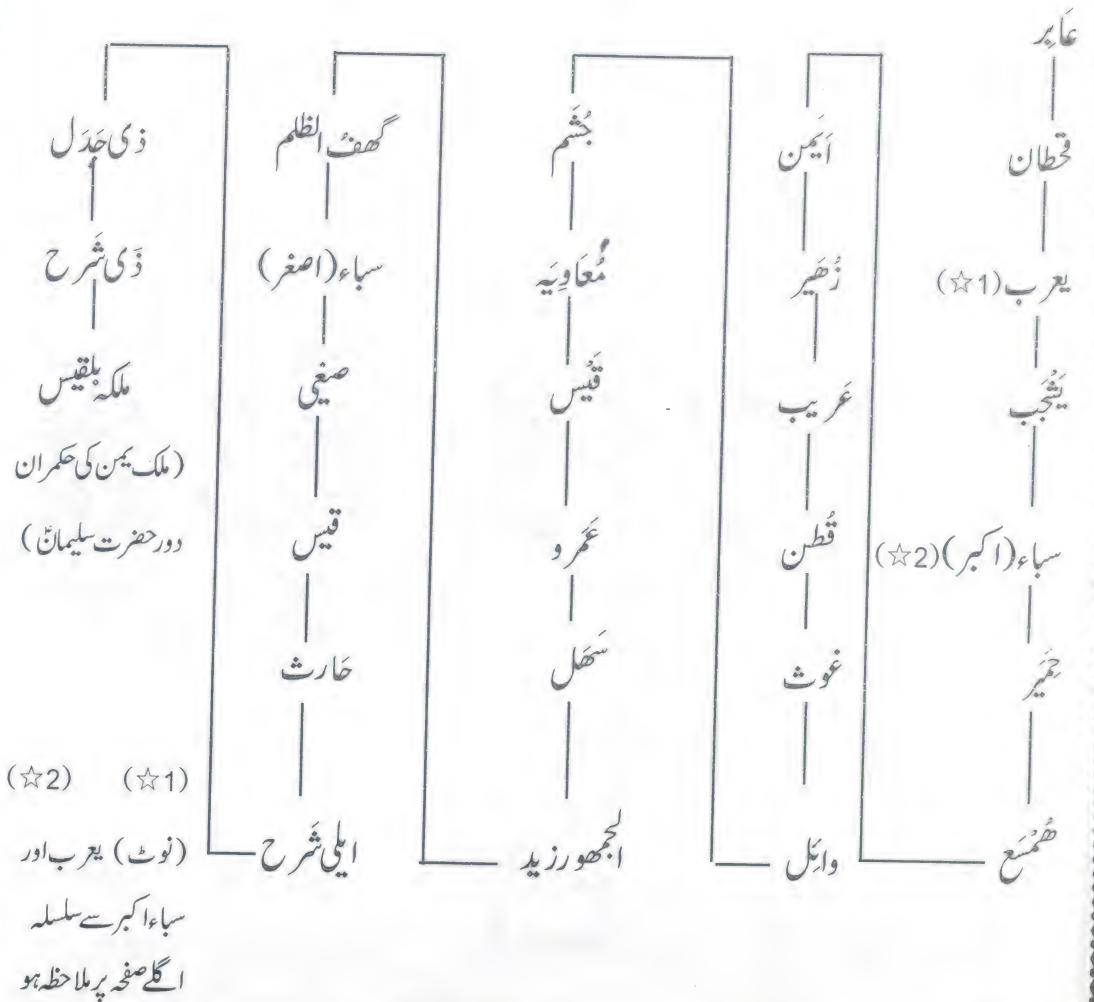 عَابِر
قحطان
یعرب (☆1)
یَشْجُب
سباء (اکبر) (☆2)
حِمْیَر
هُمْسَع
اَیْمن
زُهَیر
عَرِیب
قُطن
غوث
وائِل
جُشَم
مُعَاوِیَه
قَیْس
عَمرو
سَهَل
الجمهور زید
گهفُ الظلم
سباء (اصغر)
صیفی
قیس
حَارث
ایلی شَرح
ذی جَدَل
ذَی شَرح
ملکہ بلقیس
(ملک یمن کی حکمران
دور حضرت سلیمانؑ)
(☆1) (☆2)
(نوٹ) یعرب اور
سباء اکبر سے سلسلہ
اگلے صفحہ پر ملاحظہ ہو